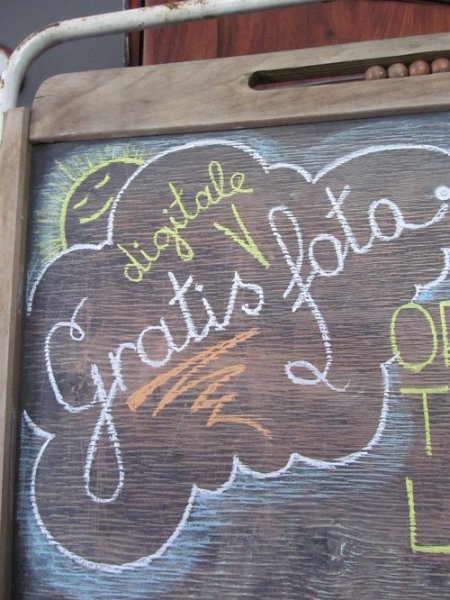 digitale
Gratis foto